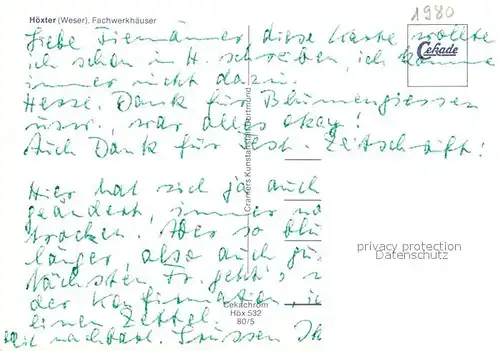 Höxter (Weser), Fachwerkhäuser
1980
Cekade
Liebe diese Karte wollte
ich schon in H. schreiben, ich komme
immer nicht dazu.
Herzl. Dank für Blumengiessen
usw., war alles okay!
Auch Dank für Zeitschrift!
Hier hat sich ja auch
geändert, immer
trocken. Aber so
länger, also auch
Nächsten Fr. geht's
der Konfirmation,
einen Zettel
nachtrat. Grüssen
Cramers Kunstanstalt Dortmund
privacy protection
Datenschutz
Cekachrom
Höx 532
80/5